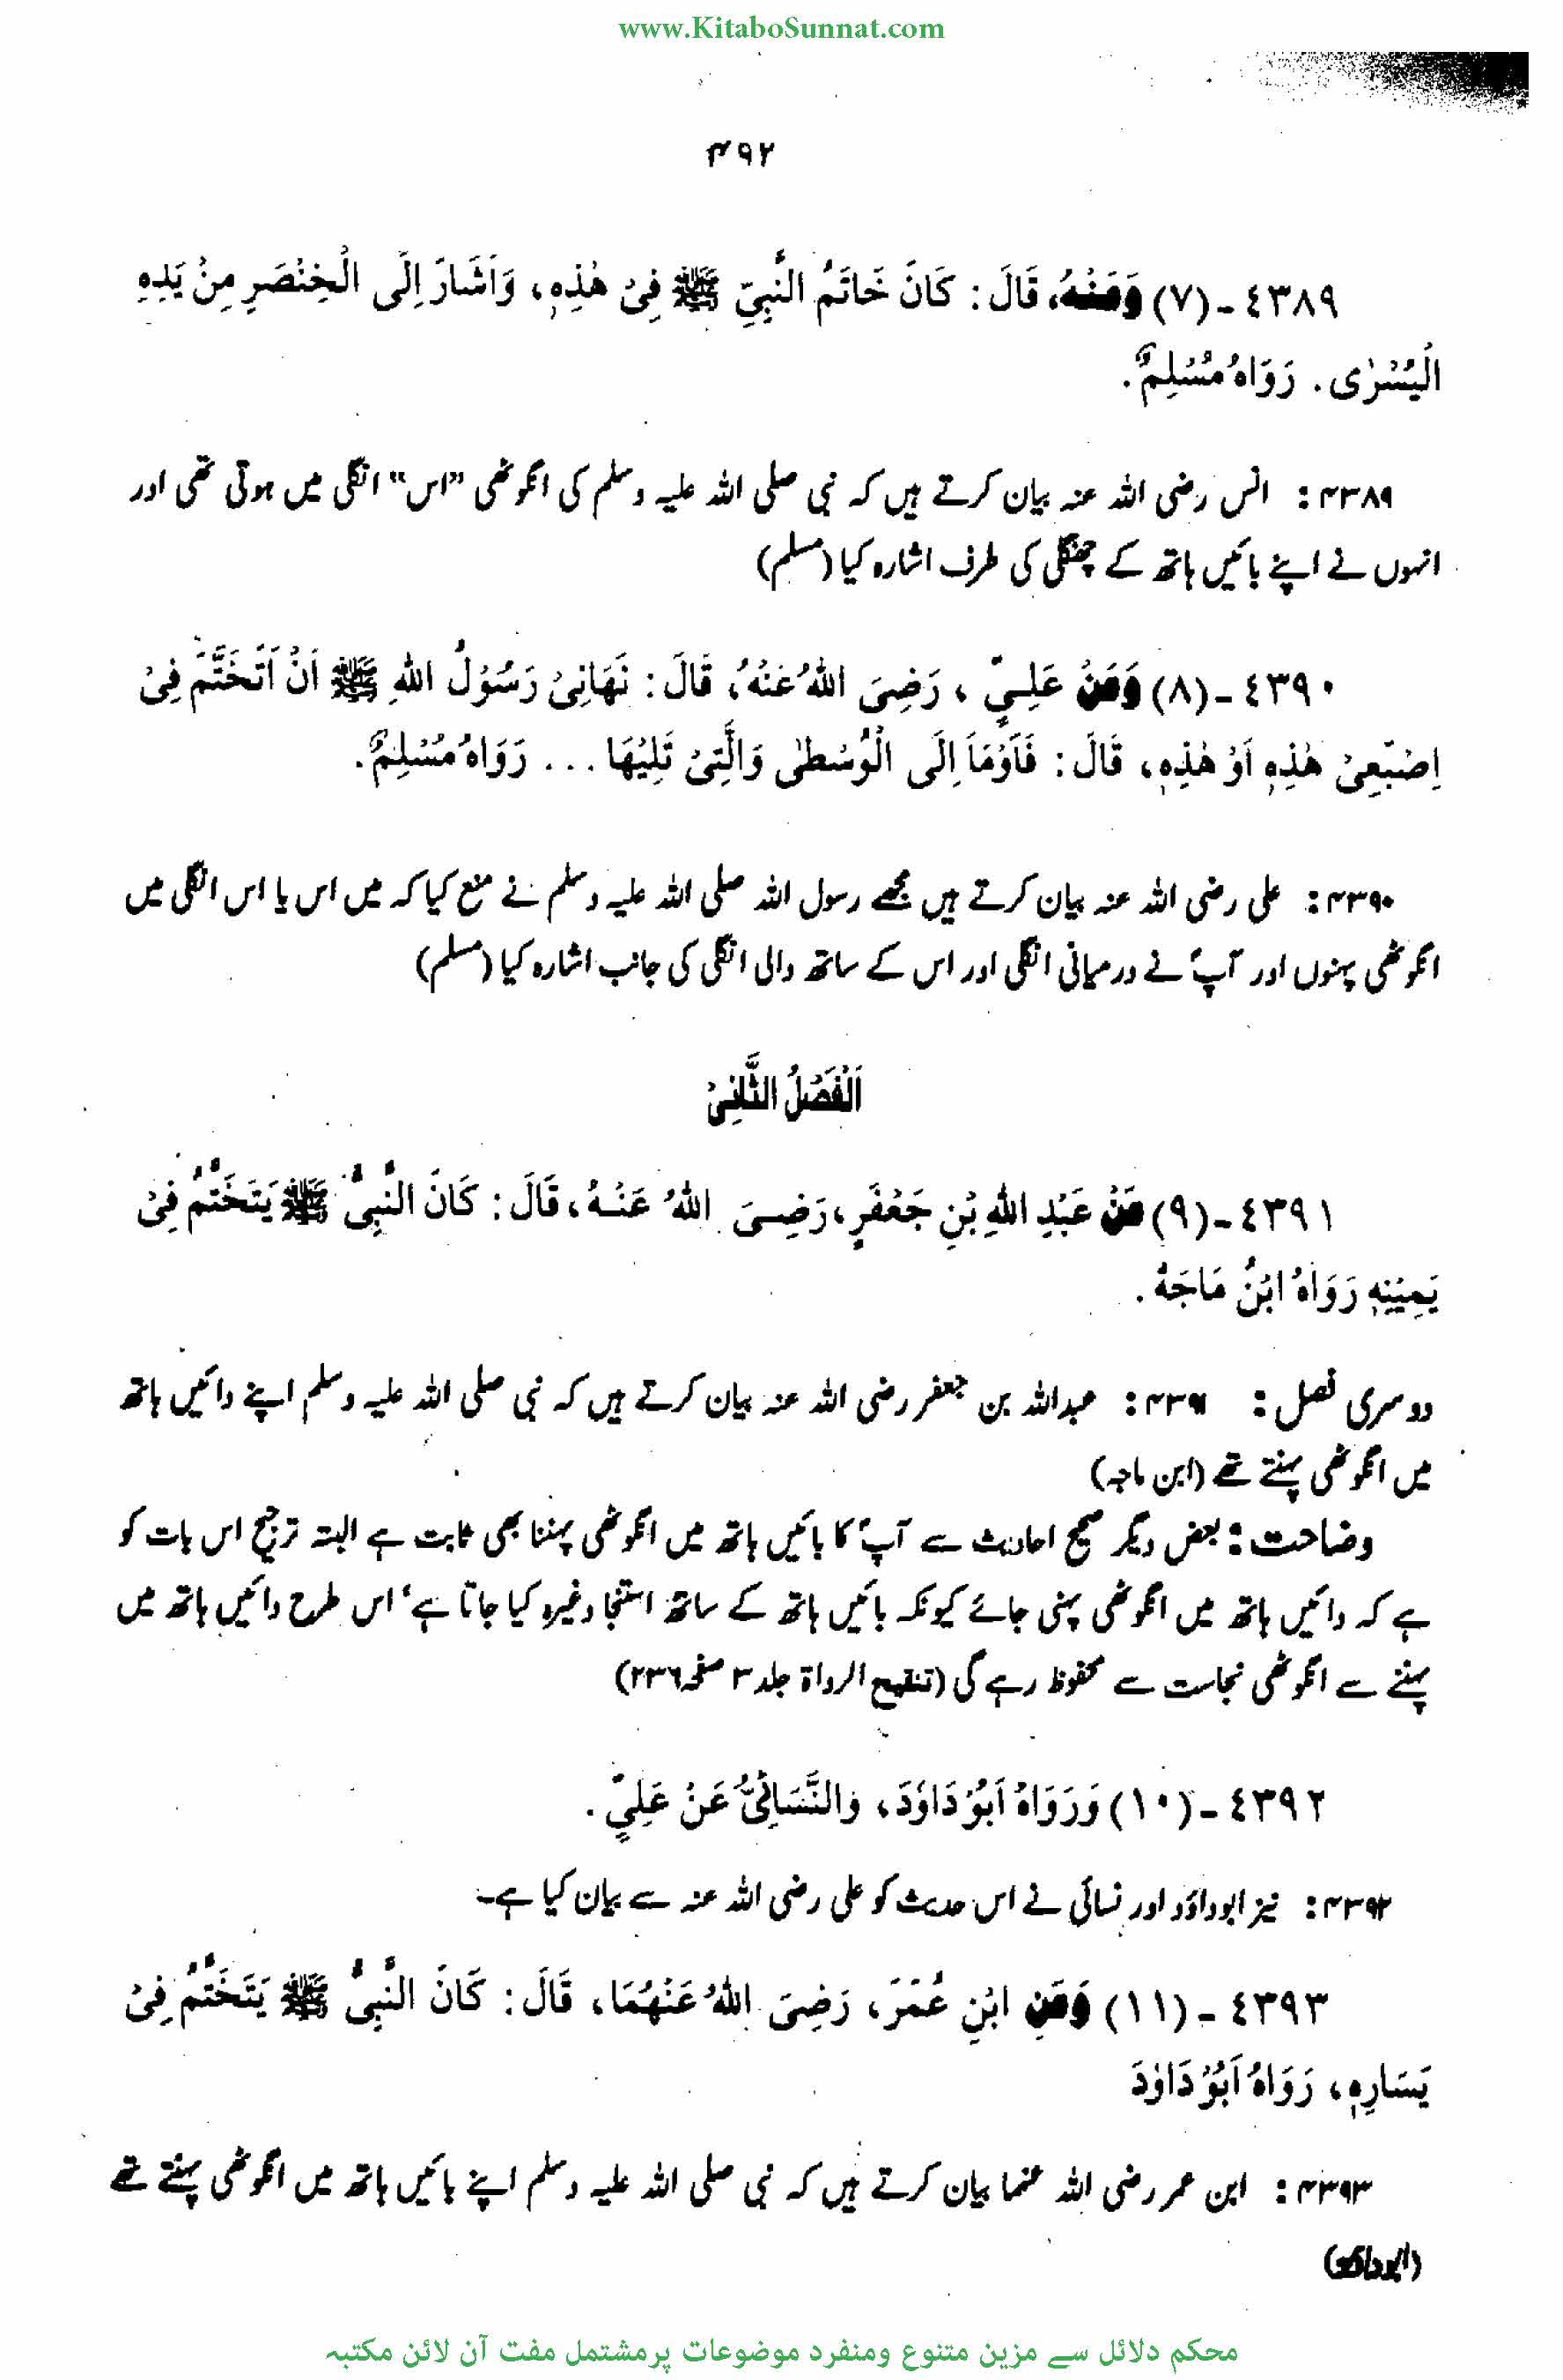 www.KitaboSunnat.com
۴۹۲
٤٣٨٩ - (٧) وَعَنْهُ، قَالَ: كَانَ خَاتَمُ النَّبِيِّ ﷺ فِىْ هٰذِهٖ، وَاَشَارَ اِلَى الْخِنْصَرِ مِنْ يَدِهِ
الْيُسْرٰى. رَوَاهُ مُسْلِمٌ.
۴۳۸۹: انس رضی اللہ عنہ بیان کرتے ہیں کہ نبی صلی اللہ علیہ وسلم کی انگوٹھی ”اس“ انگلی میں ہوتی تھی اور
انہوں نے اپنے بائیں ہاتھ کے چھنگلی کی طرف اشارہ کیا (مسلم)
٤٣٩٠ - (٨) وَعَنْ عَلِيٍّ، رَضِىَ اللهُ عَنْهُ، قَالَ: نَهَانِىْ رَسُوْلُ اللهِ ﷺ اَنْ اَتَخَتَّمَ فِىْ
اِصْبَعِىْ هٰذِهٖ اَوْ هٰذِهٖ، قَالَ: فَاَوْمَاَ اِلَى الْوُسْطٰى وَالَّتِىْ تَلِيْهَا... رَوَاهُ مُسْلِمٌ.
۴۳۹۰: علی رضی اللہ عنہ بیان کرتے ہیں مجھے رسول اللہ صلی اللہ علیہ وسلم نے منع کیا کہ میں اس یا اس انگلی میں
انگوٹھی پہنوں اور آپؐ نے درمیانی انگلی اور اس کے ساتھ والی انگلی کی جانب اشارہ کیا (مسلم)
اَلْفَصْلُ الثَّانِىْ
٤٣٩١ - (٩) عَنْ عَبْدِ اللهِ بْنِ جَعْفَرٍ، رَضِىَ اللهُ عَنْهُ، قَالَ: كَانَ النَّبِىُّ ﷺ يَتَخَتَّمُ فِىْ
يَمِيْنِهٖ رَوَاهُ ابْنُ مَاجَهْ.
دوسری فصل: ۴۳۹۱: عبداللہ بن جعفر رضی اللہ عنہ بیان کرتے ہیں کہ نبی صلی اللہ علیہ وسلم اپنے دائیں ہاتھ
میں انگوٹھی پہنتے تھے (ابن ماجہ)
وضاحت: بعض دیگر صحیح احادیث سے آپؐ کا بائیں ہاتھ میں انگوٹھی پہننا بھی ثابت ہے البتہ ترجیح اس بات کو
ہے کہ دائیں ہاتھ میں انگوٹھی پہنی جائے کیونکہ بائیں ہاتھ کے ساتھ استنجا وغیرہ کیا جاتا ہے، اس طرح دائیں ہاتھ میں
پہننے سے انگوٹھی نجاست سے محفوظ رہے گی (تنقیح الرواۃ جلد ۳ صفحہ ۲۳۶)
٤٣٩٢ - (١٠) وَرَوَاهُ اَبُوْ دَاوٗدَ، وَالنَّسَائِىُّ عَنْ عَلِيٍّ.
۴۳۹۲: نیز ابوداؤد اور نسائی نے اس حدیث کو علی رضی اللہ عنہ سے بیان کیا ہے۔
٤٣٩٣ - (١١) وَعَنِ ابْنِ عُمَرَ، رَضِىَ اللهُ عَنْهُمَا، قَالَ: كَانَ النَّبِىُّ ﷺ يَتَخَتَّمُ فِىْ
يَسَارِهٖ، رَوَاهُ اَبُوْ دَاوٗدَ
۴۳۹۳: ابن عمر رضی اللہ عنہما بیان کرتے ہیں کہ نبی صلی اللہ علیہ وسلم اپنے بائیں ہاتھ میں انگوٹھی پہنتے تھے
(ابوداؤد)
محکم دلائل سے مزین متنوع ومنفرد موضوعات پرمشتمل مفت آن لائن مکتبہ